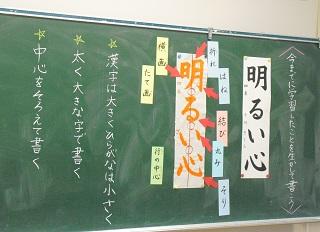 〈今までに学習したことを生かして書こう〉
明るい心
折れ
はね
結び
丸み
そり
明るい心
横画
たて画
行の中心
☆漢字は大きくひらがなは小さく
☆太く大きな字で書く
☆中心をそろえて書く